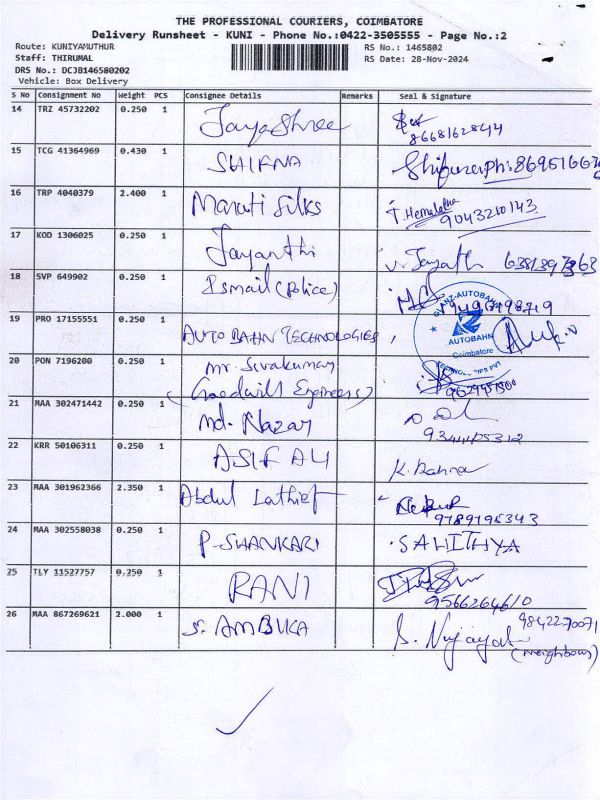 THE PROFESSIONAL COURIERS, COIMBATORE
Delivery Runsheet - KUNI - Phone No.:0422-3505555 - Page No.:2
Route: KUNIYAMUTHUR RS No.: 1465802
Staff: THIRUMAL RS Date: 28-Nov-2024
DRS No.: DCJB146580202
Vehicle: Box Delivery
S No Consignment No Weight PCS Consignee Details Remarks Seal & Signature
14 TRZ 45732202 0.250 1 JayaShree
8668162844
15 TCG 41364969 0.430 1 SHIFNA
16 TRP 4040379 2.400 1 Maruti Silks T. Hemalatha
9043200143
17 KOD 1306025 0.250 1 Jayanthi
18 SVP 649902 0.250 1 Ismail (Police)
19 PRO 17155551 0.250 1 AUTO BAHN TECHNOLOGIES,
AUTOBAHN
Coimbatore
20 PON 7196200 0.250 1 Mr. Sivakumar
(Goodwill Engineers)
21 MAA 302471442 0.250 1 Md. Nazar
22 KRR 50106311 0.250 1 ASIF ALI
23 MAA 301962366 2.350 1 Abdul Lathief
9789195343
24 MAA 302558038 0.250 1 P-SHANKARI SAHITHYA
25 TLY 11527757 0.250 1 RANI
9566264610
26 MAA 867269621 2.000 1 S. AMBUKA 9842270071
(neighbour)